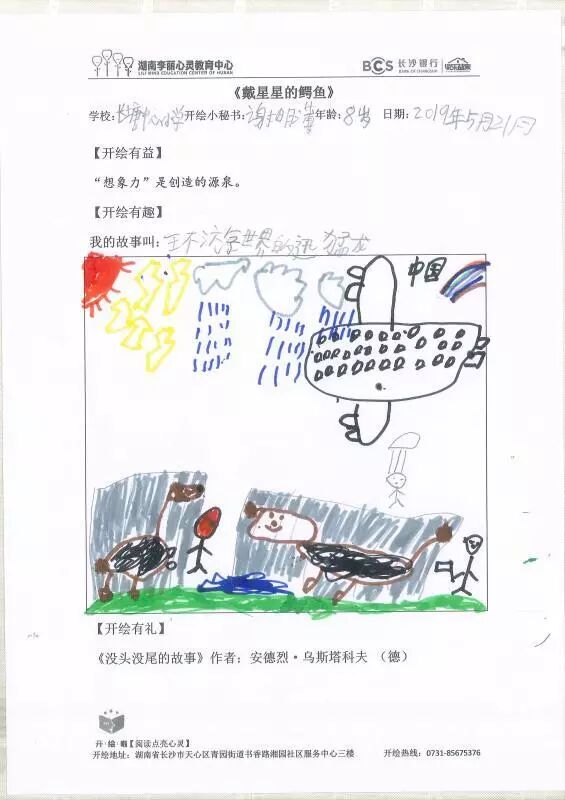 湖南李丽心灵教育中心
LILI MIND EDUCATION CENTER OF HUNAN
BCS 长沙银行
BANK OF CHANGSHA
《戴星星的鳄鱼》
学校: 小学 开绘小秘书: 年龄: 8岁 日期: 2019年5月21日
【开绘有益】
“想象力”是创造的源泉。
【开绘有趣】
我的故事叫: 世界的迅猛龙
中国
【开绘有礼】
《没头没尾的故事》作者：安德烈·乌斯塔科夫 （德）
开·绘·啦【阅读点亮心灵】
开绘地址：湖南省长沙市天心区青园街道书香路湘园社区服务中心三楼 开绘热线：0731-85675376